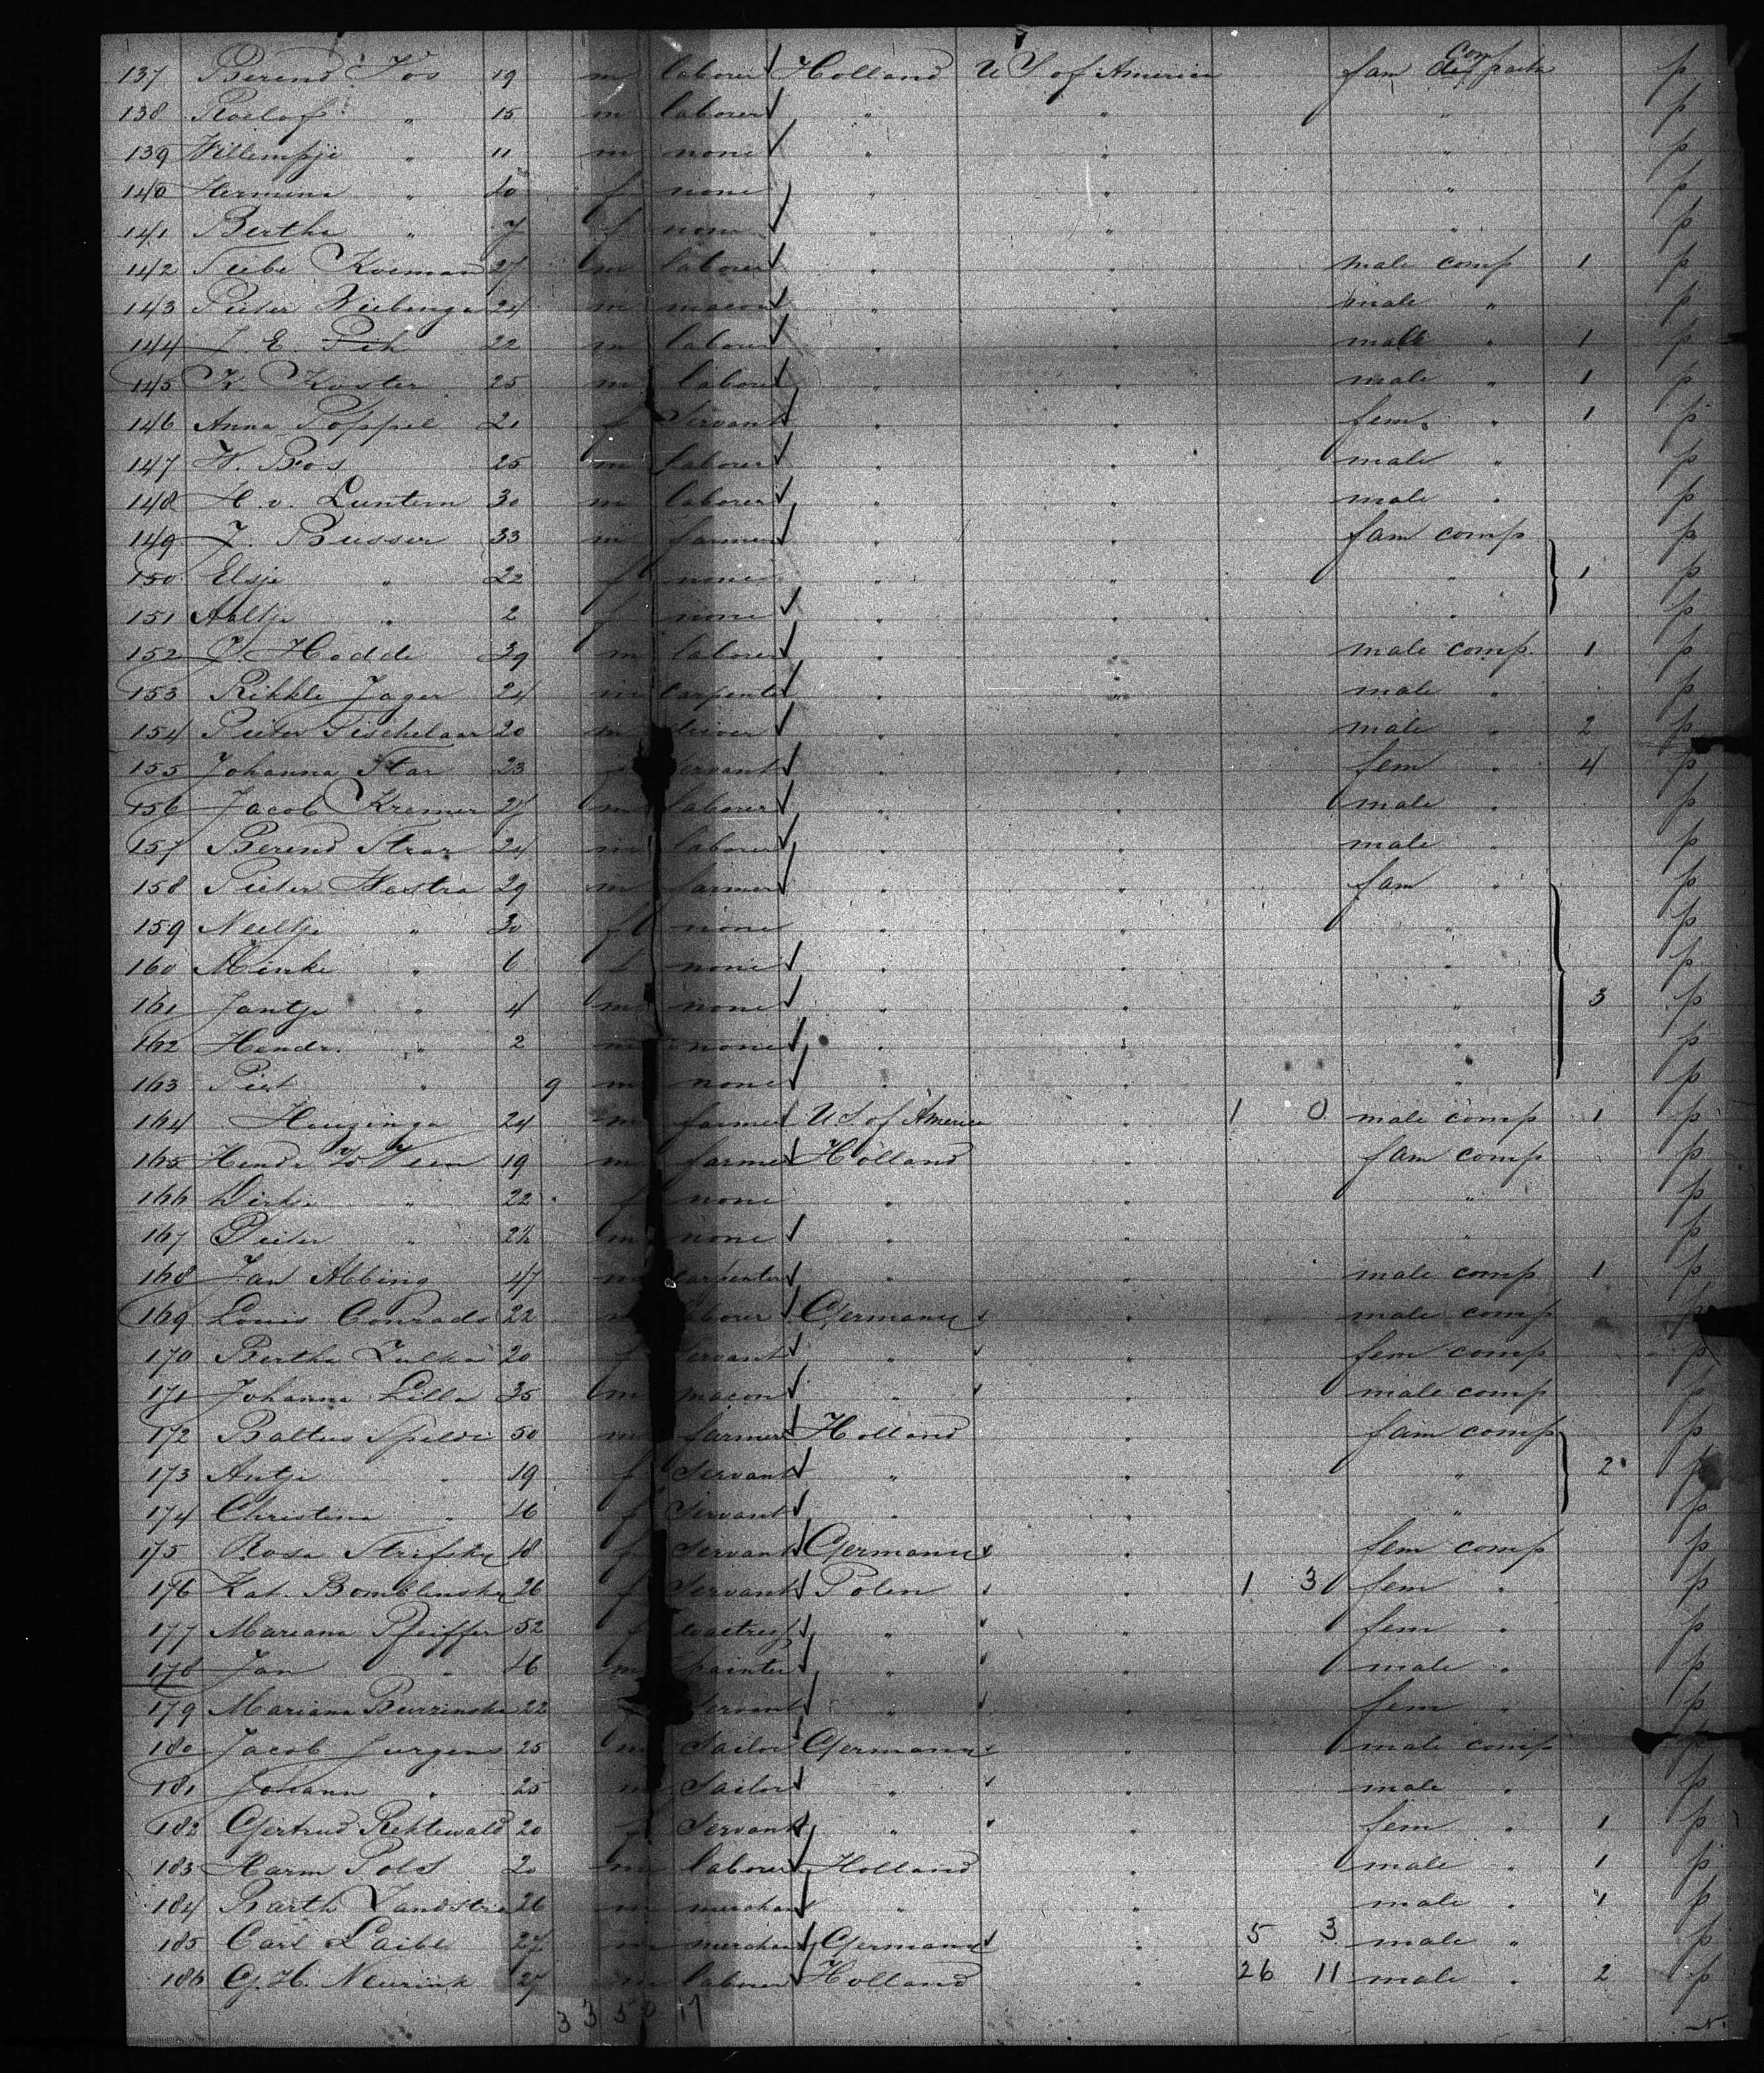 137 Berend Vos 19 m laborer Holland U S of America fam Comp
138 Roelof " 15 m laborer " " " p
139 Willempje " 11 m none " " " p
140 Hermina " 10 f none " " " p
141 Bertha " 7 f none " " " p
142 Tiebe Koeman 27 m laborer " " male comp 1 p
143 Pieter Wiebenga 24 m macon " " male " p
144 J. E. Pik 22 m laborer " " male " 1 p
145 K. Koster 25 m laborer " " male " 1 p
146 Anna Poppel 21 f Servant " " fem. " 1 p
147 H. Bos 25 m laborer " " male " p
148 H. v. Luntern 30 m laborer " " male " p
149 J. Busser 33 m farmer " " fam comp p
150 Elsje " 22 f none " " " 1 p
151 Aaltje " 2 f none " " " p
152 J. Hodde 39 m laborer " " male comp. 1 p
153 Rikkle Jager 24 m carpenter " " male " p
154 Pieter Tischelaar 20 m " " male " 2 p
155 Johanna Star 23 f servant " " fem " 4 p
156 Jacob Kremer 27 m laborer " " male " p
157 Berend Strar 24 m laborer " " male " p
158 Pieter Hostra 29 m farmer " " fam " p
159 Neeltje " 30 f none " " " p
160 Minke " 6 f none " " " p
161 Jantje " 4 m none " " " 3 p
162 Hendr. " 2 m none " " " p
163 Piet " 9 m none " " " p
164 Houzinga 24 m farmer U S of America " 1 0 male comp 1 p
165 Hendr v. d. Veen 19 m farmer Holland " fam comp p
166 Dirk. " 22 f none " " " p
167 Pieter " 24 m none " " " p
168 Jan Abbing 47 m carpenter " " male comp 1 p
169 Louis Conrads 22 m laborer Germany " male comp p
170 Bertha Zulka 20 f servant " " fem comp p
171 Johanna Lilla 35 m macon " " male comp p
172 Baltus Speldi 50 m farmer Holland " fam comp p
173 Antje " 19 f Servant " " " 2 p
174 Christina " 16 f Servant " " " p
175 Rosa 18 f Servant Germany " fem comp p
176 Kat. Bomblenska 26 f Servant Polen " 1 3 fem " p
177 Mariana Pfeiffer 52 f waitress " " fem " p
178 Jan " 16 m painter " " male " p
179 Mariana Burzinska 22 f servant " " fem " p
180 Jacob Jurgens 25 m Sailor Germany " male comp p
181 Johann " 25 m Sailor " " male " p
182 Gertrud Rehtewald 20 f Servant " " fem " 1 p
183 Harm Pols 20 m laborer Holland " male " 1 p
184 Barth Zandstra 26 m merchant " " male " 1 p
185 Carl Laible 27 m merchant Germany " 5 3 male " p
186 G. H. Neurink 27 m laborer Holland " 26 11 male " 2 p
3 3 5 0 17